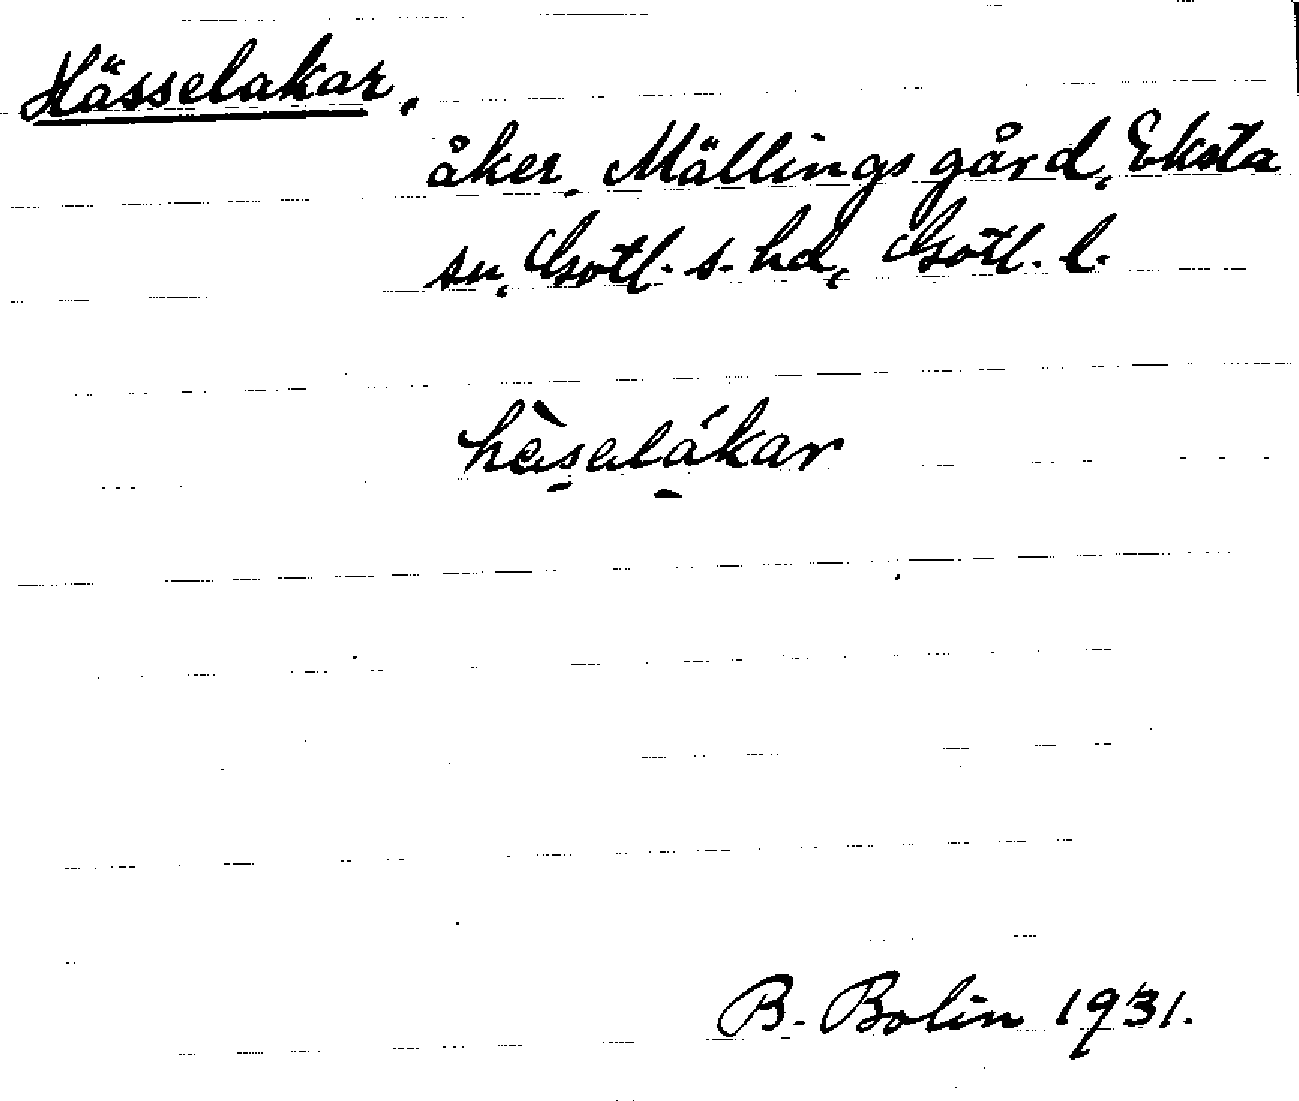 Hässelakar,
åker, Mällings gård, Eksta
sn, Gotl. s. hd, Gotl. l.
hèsalákar
B. Bolin 1931.